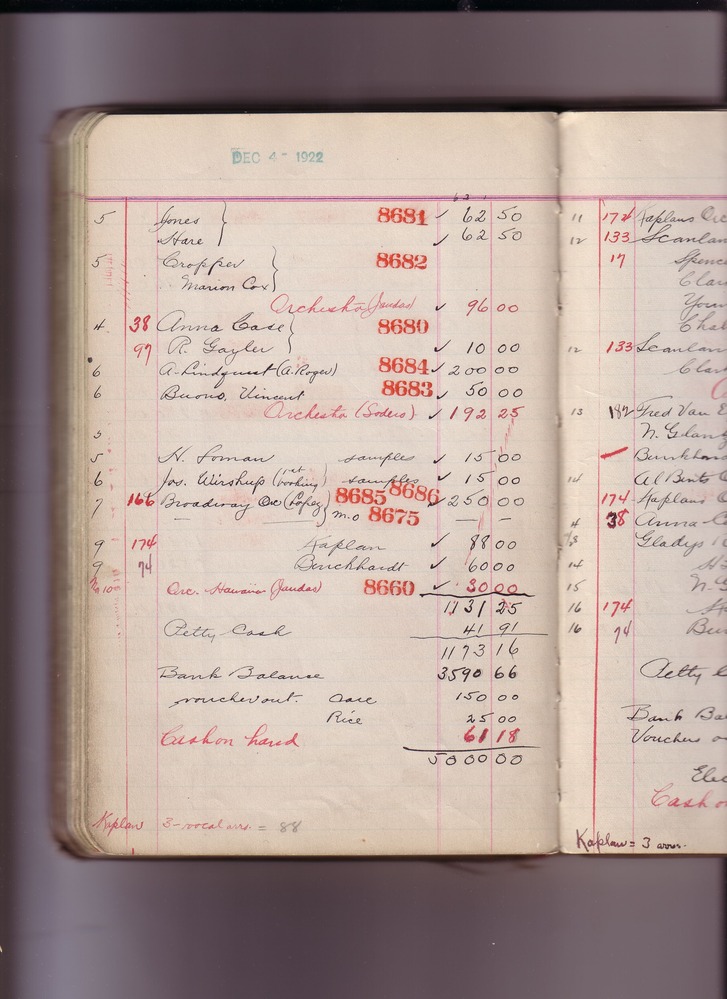 DEC 4 - 1922
5 Jones } 8681 ✓ 62 50
Hare ✓ 62 50
5 Cropper } 8682
Marion Cox
Orchestra (Jaudas) ✓ 96 00
4 38 Anna Case } 8680
97 R. Gayler ✓ 10 00
6 A. Lindquest (A. Roger) 8684 ✓ 200 00
6 Buono, Vincent 8683 ✓ 50 00
Orchestra (Sodero) ✓ 192 25
5 N. Loman samples ✓ 15 00
6 Jos. Wirshup samples ✓ 15 00
7 166 Broadway Orc (Lopez) 8685 8686 ✓ 250 00
m.o 8675 — —
9 174 Kaplan ✓ 88 00
9 74 Burckhardt ✓ 60 00
Orc. Hawaiian (Jaudas) 8660 ✓ 30 00
1131 25
Petty Cash 41 91
1173 16
Bank Balance 3590 66
voucher out. Case 150 00
Rice 25 00
Cash on hand 61 18
5000 00
Kaplan 3 - vocal arrs. = 88
11 174 Kaplans Orc
12 133 Scanlan
17 Spenc
Clar
Youn
Cha
12 133 Scanlan
Clar
13 182 Fred Van E
N. Glant
Burkhard
14 Al Bent
174 Kaplans O
4 38 Anna C
Gladys R
14
15 N. G
16 174
16 74 Bur
Petty C
Bank Ba
Vouchers o
Elec
Cash o
Kaplan = 3 arrs.